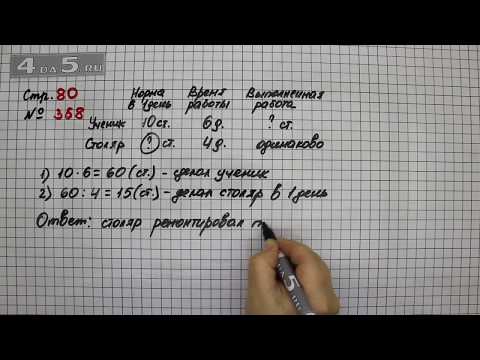 4 DA 5 RU
Стр. 80
№ 358
Норма в 1 день Время работы Выполненная работа
Ученик 10 ст. 6 д. ? ст.
Столяр ? ст. 4 д. одинаково
1) 10 · 6 = 60 (ст.) - сделал ученик
2) 60 : 4 = 15 (ст.) - делал столяр в 1 день
Ответ: столяр ремонтировал